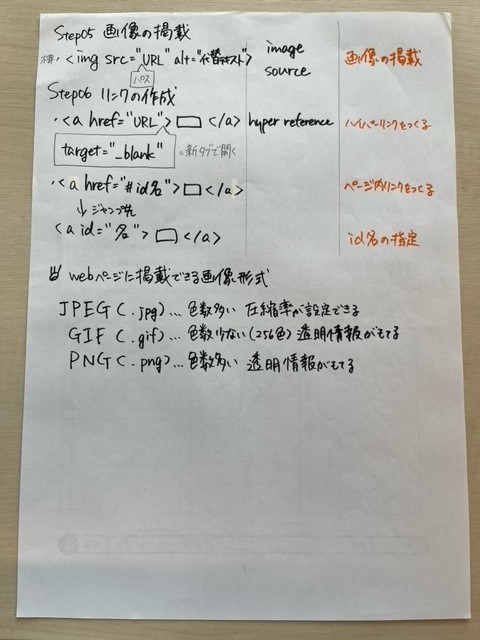 Step05 画像の掲載
<img src="URL" alt="代替テキスト"> image source 画像の掲載
パス
Step06 リンクの作成
・<a href="URL">□</a> hyper reference ハイパーリンクをつくる
target="_blank" =新タブで開く
・<a href="#id名">□</a> ページ内リンクをつくる
↓ジャンプ先
<a id="名">□</a> id名の指定
webページに掲載できる画像形式
JPEG(.jpg)…色数多い 圧縮率が設定できる
GIF(.gif)…色数少ない(256色)透明情報がもてる
PNG(.png)…色数多い 透明情報がもてる